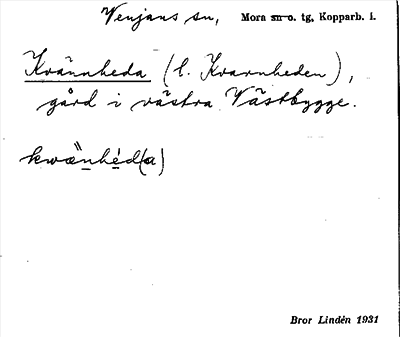 Venjans sn, Mora sn o. tg, Kopparb. i.
Kvännheda (l. Kvarnheden),
gård i västra Västbygge.
kwä̀nhéd(a)
Bror Lindén 1931